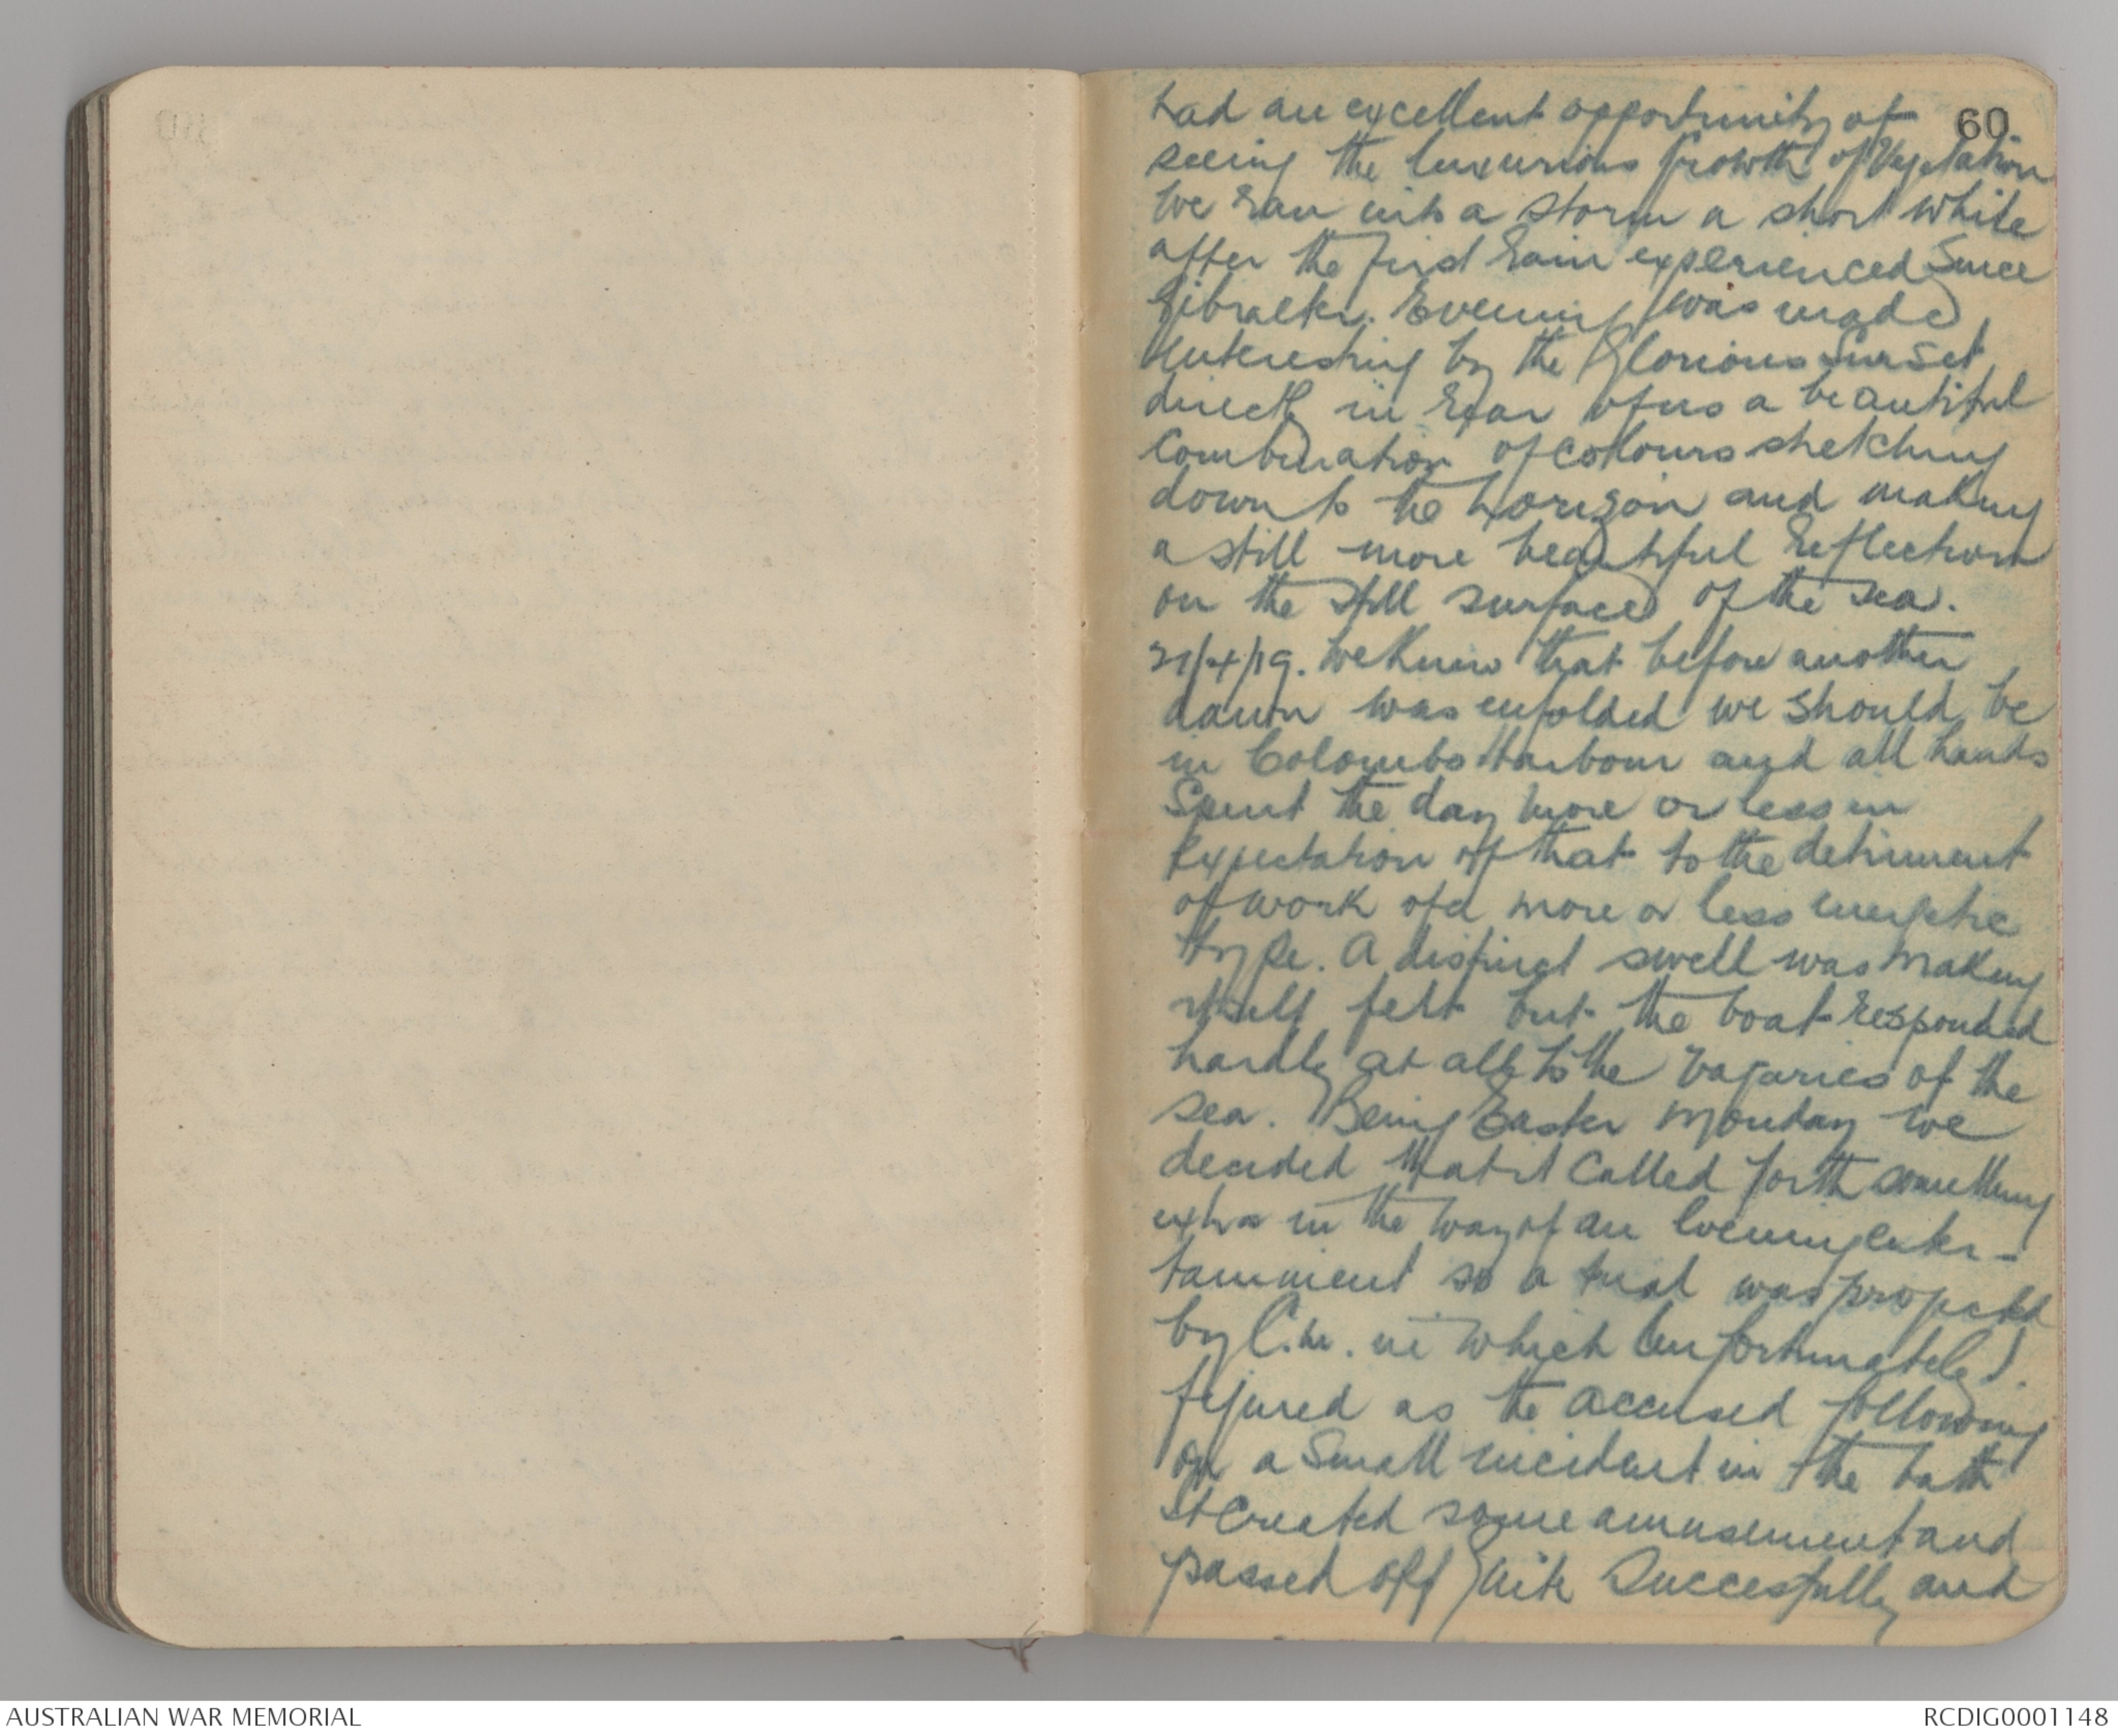 60
had an excellent opportunity of
seeing the luxurious growth of Vegetation
We ran into a storm a short while
after the first rain experienced Since
Gibralter. Evening was made
interesting by the Glorious Sunset
directly in rear of us a beautiful
Combination of colours stretching
down to the horizon and making
a still more beautiful reflection
on the still surface of the sea.
21/4/19. We knew that before another
dawn was enfolded we should be
in Colombo Harbour and all hands
Spent the day more or less in
expectation of that to the detriment
of work of a more or less energetic
type. A distinct swell was making
itself felt but the boat responded
hardly at all to the vagaries of the
sea. Being Easter Monday we
decided that it called forth something
extra in the way of an Evening enter-
tainment so a trial was projected
by C.M. in which Unfortunately I
figured as the accused following
on a Small incident in the bath
It created some amusement and
passed off Quite Succesfully and
AUSTRALIAN WAR MEMORIAL
RCDIG0001148